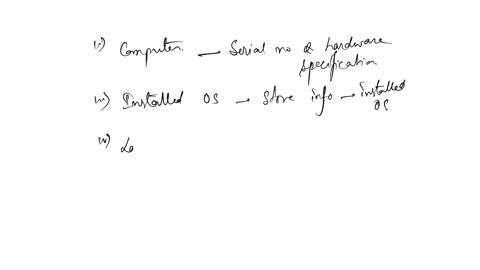 ii) Computer → Serial no & hardware
specification
iii) Installed OS → Store info → installed
OS
iv) Lo